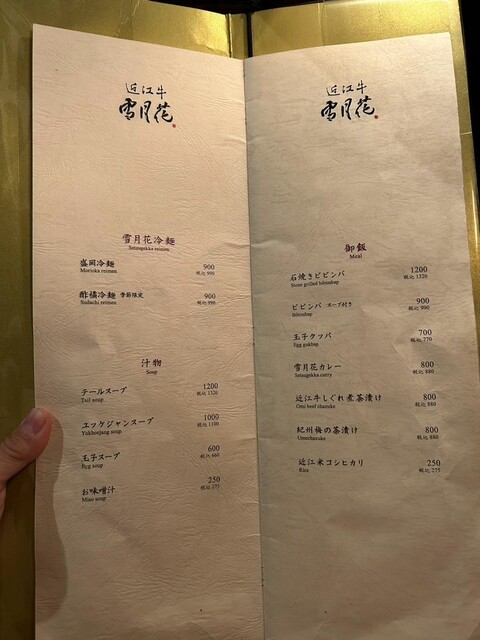 近江牛
雪月花
雪月花冷麺
Setsugekka reimen
盛岡冷麺 900
Morioka reimen 税込 990
酢橘冷麺 季節限定 900
Sudachi reimen 税込 990
汁物
Soup
テールスープ 1200
Tail soup 税込 1320
ユッケジャンスープ 1000
Yukhoejang soup 税込 1100
玉子スープ 600
Egg soup 税込 660
お味噌汁 250
Miso soup 税込 275
近江牛
雪月花
御飯
Meal
石焼きビビンバ 1200
Stone grilled bibimbap 税込 1320
ビビンバ スープ付き 900
Bibimbap 税込 990
玉子クッパ 700
Egg gukbap 税込 770
雪月花カレー 800
Setsugekka curry 税込 880
近江牛しぐれ煮茶漬け 800
Omi beef chazuke 税込 880
紀州梅の茶漬け 800
Umechazuke 税込 880
近江米コシヒカリ 250
Rice 税込 275